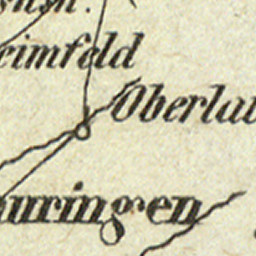 eimfeld
Oberlau
uringen